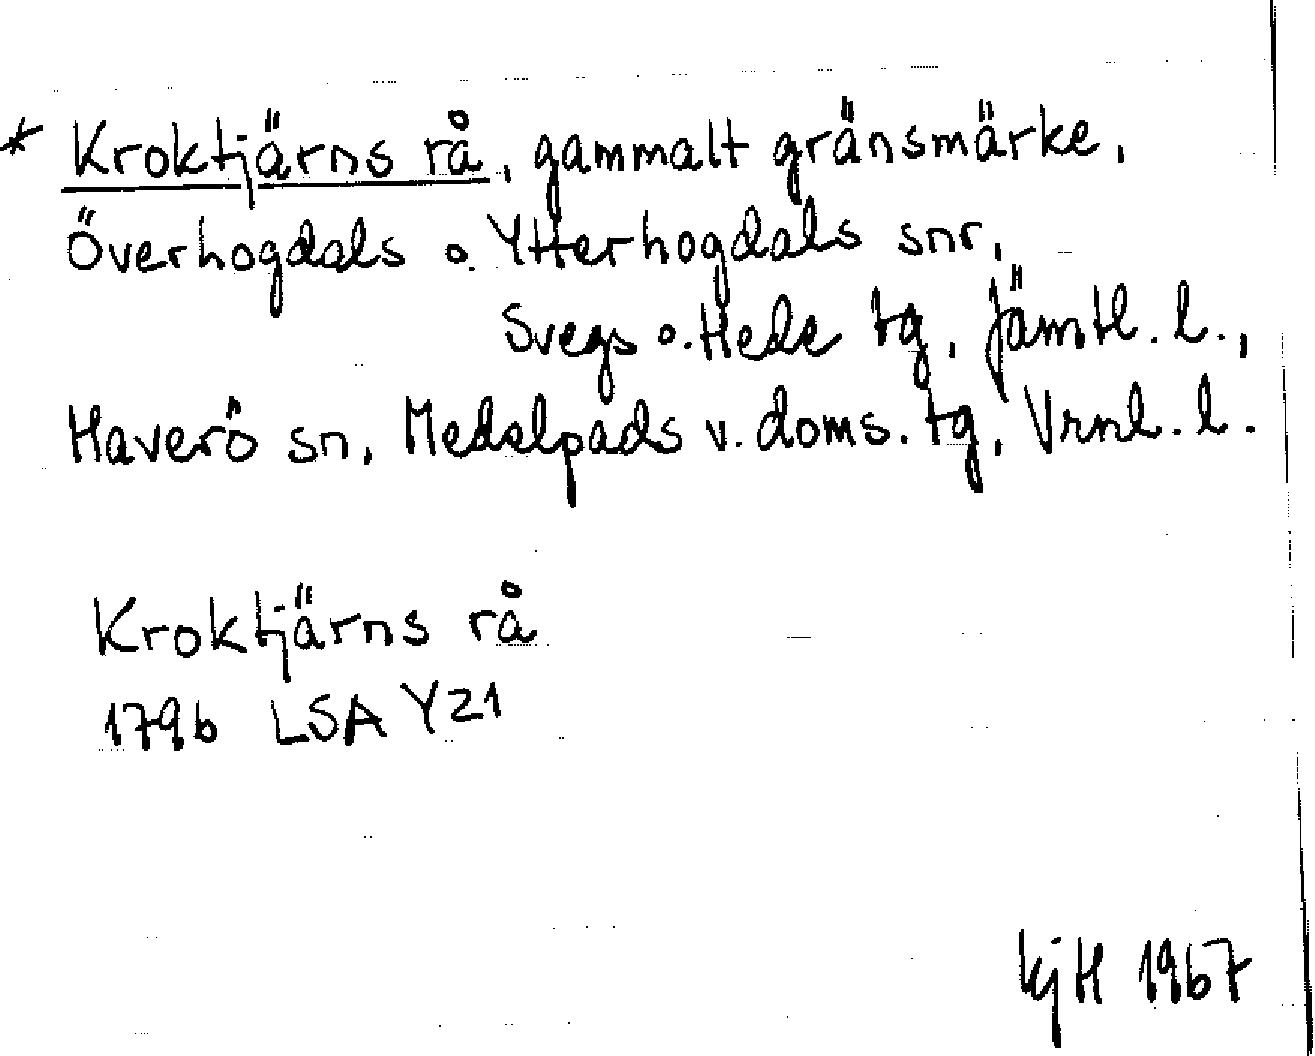 * Kroktjärns rå, gammalt gränsmärke,
Överhogdals o. Ytterhogdals snr,
Svegs o. Hede tg, Jämtl. l.,
Haverö sn, Medelpads v. doms. tg, Vrnl. l.
Kroktjärns rå
1796 LSA Y21
KjH 1967